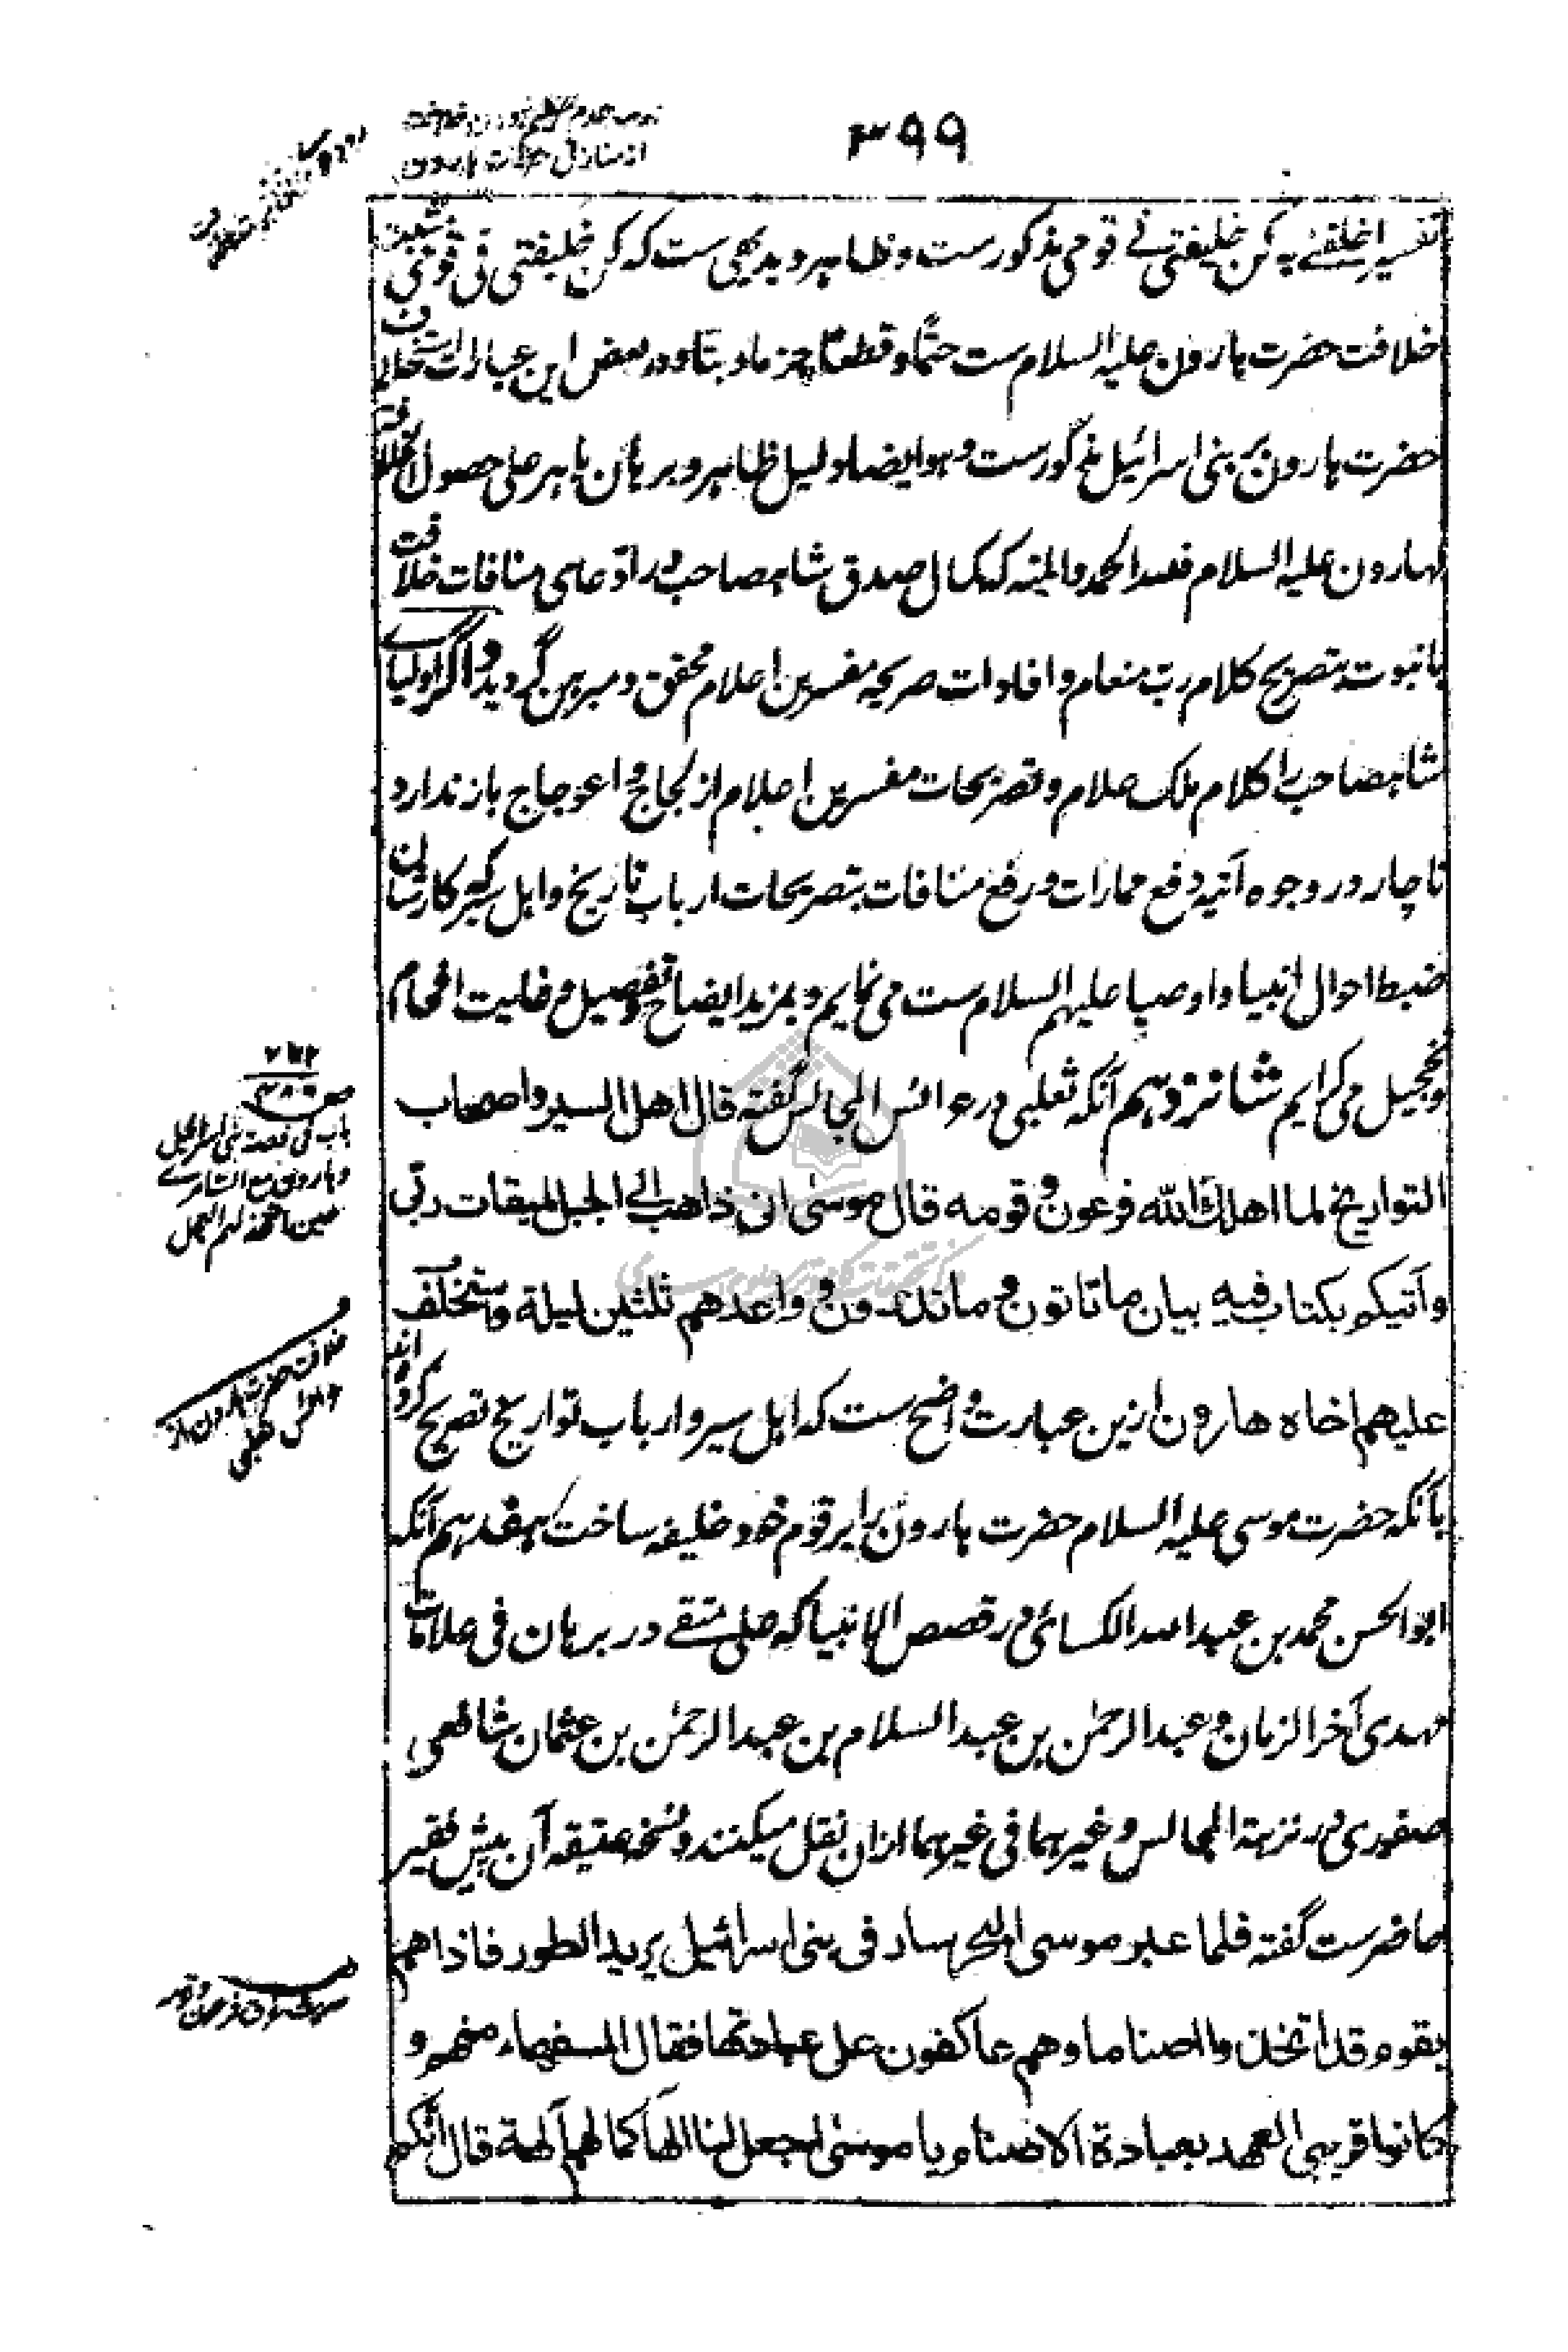 ۳۹۹
تفسیر اخلفنے به کن خلیفتی فے قومی مذکورست و ظاهر و بدیهی ست که کن خلیفتی فی قومی مثبت
خلافت حضرت هارون علیه السلام ست حتمًا و قطعًا و جزما و بتًا و در بعض این عبارات استخلاف
حضرت هارون بر بنی اسرائیل مذکورست و هو ایضا دلیل ظاهر و برهان باهر علی حصول الخلافة
لهارون علیه السلام فلله الحمد و المنه که کمال صدق شاهصاحب در ادّعای منافات خلافت
با نبوت بتصریح کلام رب منعام و افادات صریحه مفسرین اعلام محقق و مبرهن گردید و اگر اولیای
شاهصاحب را کلام ملک علام و تصریحات مفسرین اعلام از لجاج و اعوجاج باز ندارد
ناچار در وجوه آتیه دفع ممارات و رفع منافات بتصریحات ارباب تاریخ و اهل سیر که کارشان
ضبط احوال انبیا و اوصیا علیهم السلام ست می نمایم و بمزید ایضاح و تفصیل و غایت افحام
و تخجیل می گرایم شانزدهم آنکه ثعلبی در عرائس المجالس گفته قال اهل السیر و اصحاب
التواریخ لما اهلك الله فرعون و قومه قال موسی انی ذاهب الی الجبل لمیقات ربّی
و آتیکم بکتاب فیه بیان ما تاتون و ما تذرون و واعدهم ثلثین لیلة و استخلف
علیهم اخاه هارون ازین عبارت واضح ست که اهل سیر و ارباب تواریخ تصریح کرده اند
بآنکه حضرت موسی علیه السلام حضرت هارون را بر قوم خود خلیفه ساخت هفدهم آنکه
ابو الحسن محمد بن عبد الله الکسائی در قصص الانبیا که علی متقے در برهان فی علامات
مهدی آخر الزمان و عبد الرحمٰن بن عبد السلام بن عبد الرحمٰن بن عثمان شافعی
صفوری در نزهة المجالس و غیرهما فی غیرهما ازان نقل میکنند و نسخه عتیقه آن پیش فقیر
حاضرست گفته فلما عبر موسی البحر سار فی بنی اسرائیل یرید الطور فاذا هم
بقوم قد اتخذوا اصناما و هم عاکفون علی عبادتها فقال السفهاء منهم و
کانوا قریبی العهد بعبادة الاصنام یا موسی اجعل لنا الهًا کما لهم آلهة قال انکم
باب فی قصة بنی اسرائیل
و هارون مع السامرے
حین اتخذ لهم العجل
خلافت حضرت هارون از
عرائس ثعلبی